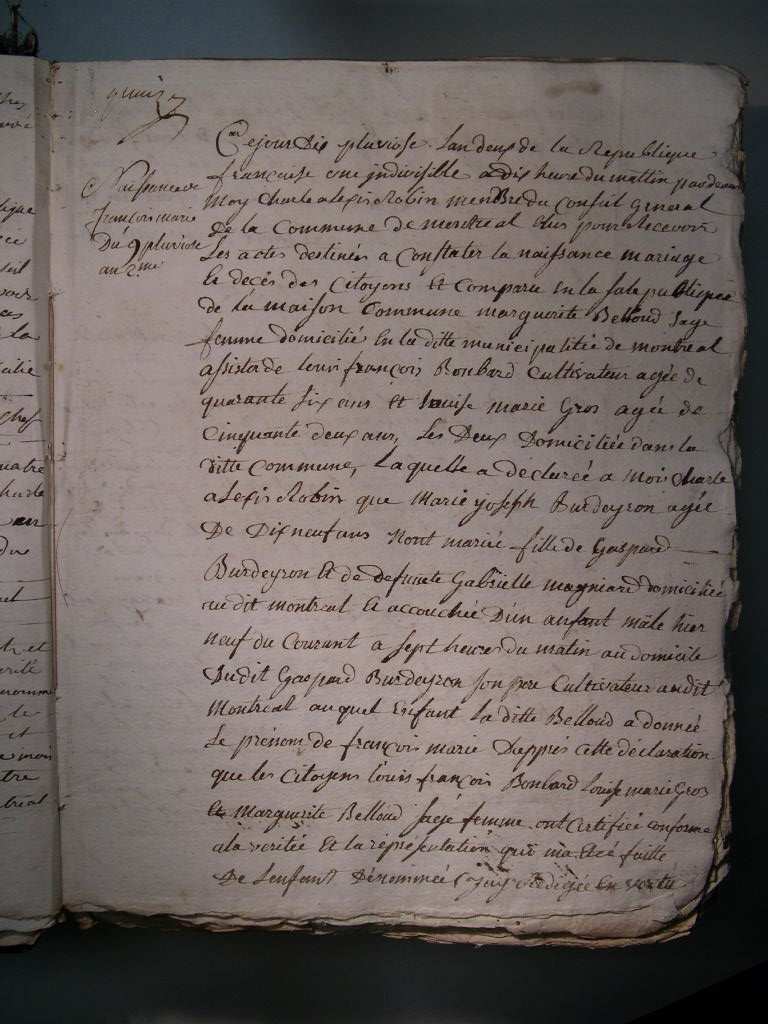 quinze
Naissance de
françois marie
Du 9 pluviose
an 2.me
Cejourdix pluviose Lan deux de la Republique
françoise une indivisible a dix heure du mattin pardevant
Moy Charle alexis Robin membre du Conseil General
De la Commune de montreal Elus pour Recevoir
Les actes destinés a Constater la naissance mariage
Le decés des Citoyens Et Comparu En la sale publique
de la maison Commune marguerite Belloud sage
femme domicilié En la ditte municipalitée de montreal
assistée de louis françois Bonbard Cultivateur agée de
quarante six ans Et Louise marie Gros agée de
Cinquante deux ans, Les Deux Domiciliée dans la
ditte Commune, Laquelle a declarée a Mois Charle
alexis Robin que Marie joseph Burdeyron agée
De Dixneuf ans Nont mariée fille de Gaspard
Burdeyron Et de defunte Gabrielle magniard domiciliée
audit montreal Et accouchée D'un anfant mâle hier
neuf du Courant a sept heures du matin au domicile
Dudit Gaspard Burdeyron son pere Cultivateur audit
Montreal auquel Enfant la ditte Belloud a donnée
Le prénom de françois marie D'apprés cette déclaration
que les Citoyens louis françois Bonbard Louise marie Gros
Et Marguerite Belloud sage femme ont Certifiée Conforme
a la veritée Et la répréséntation qui ma Etée faitte
De L'enfant Dénommée Rédigée En vertu